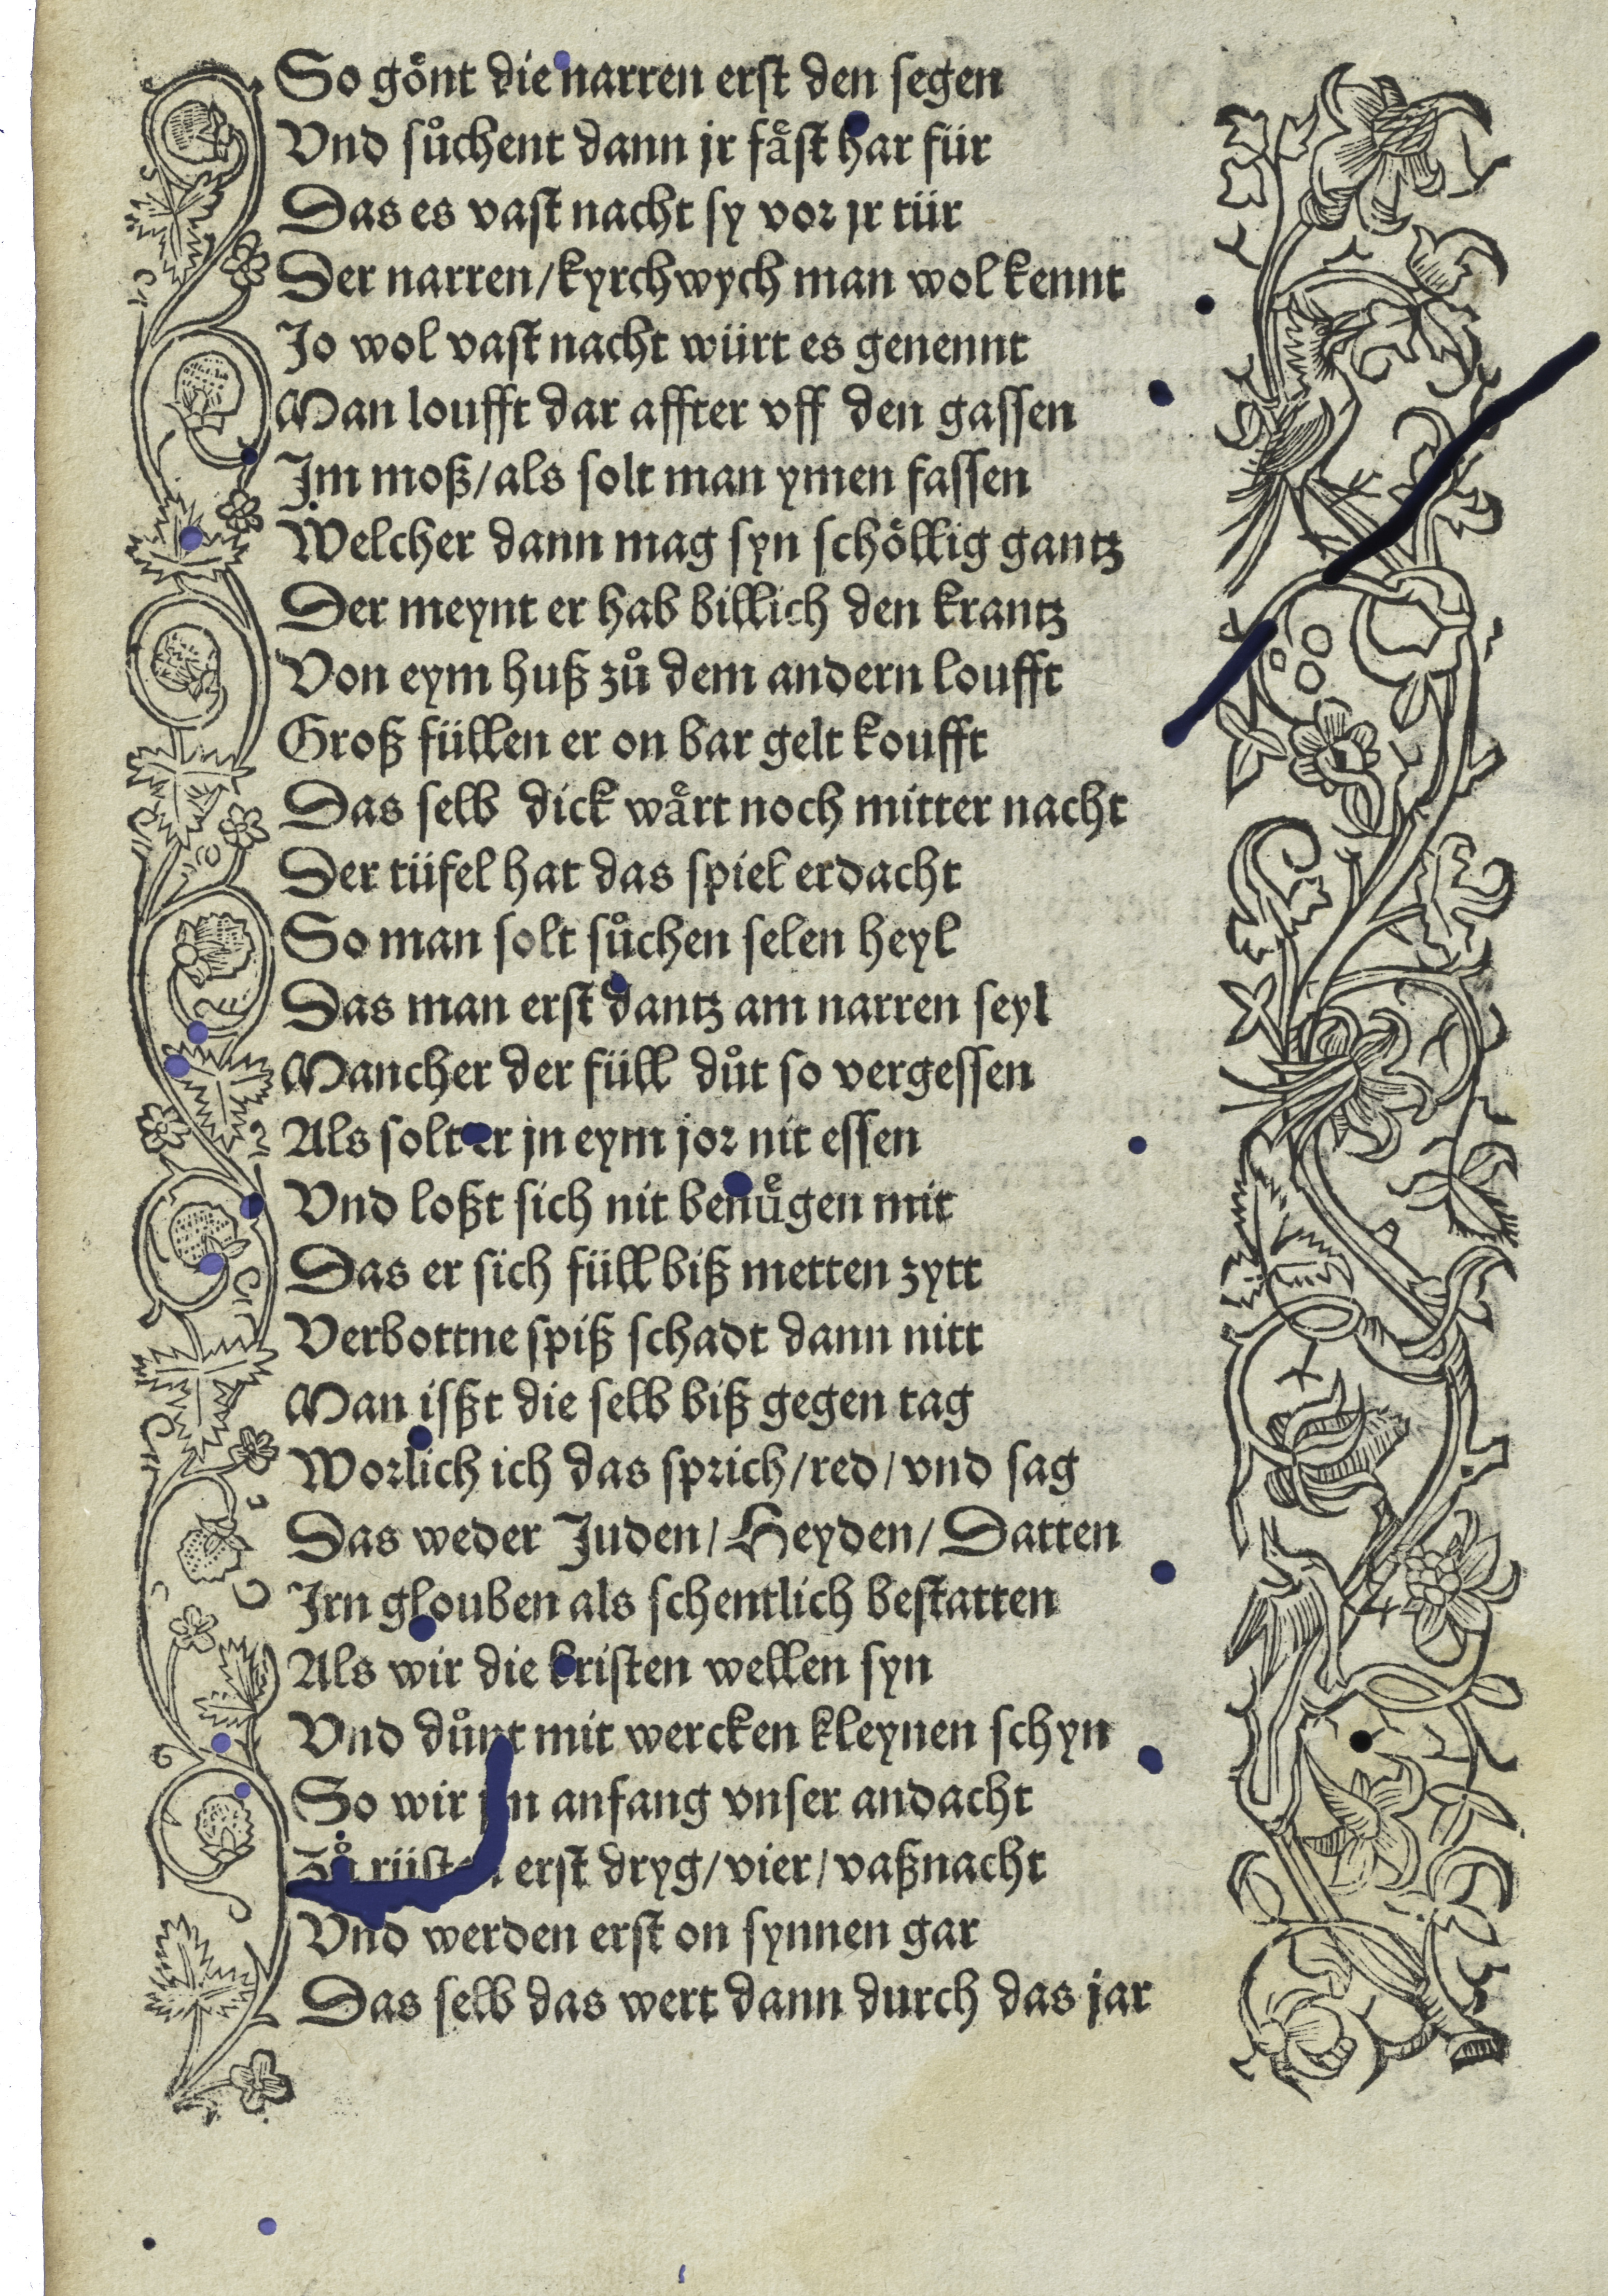 So goͤnt die narren erst den segen
Vnd suͦchent dann jr faͤst har für
Das es vast nacht sy vor jr tür
Der narren/kyrchwych man wol kennt
Jo wol vast nacht würt es genennt
Man loufft dar affter vff den gassen
Jm moß/als solt man ymen fassen
Welcher dann mag syn schoͤllig gantz
Der meynt er hab billich den krantz
Von eym huß zuͦ dem andern loufft
Groß füllen er on bar gelt koufft
Das selb dick waͤrt noch mitter nacht
Der tüfel hat das spiel erdacht
So man solt suͦchen selen heyl
Das man erst dantz am narren seyl
Mancher der füll duͦt so vergessen
Als solt er jn eym jor nit essen
Vnd loßt sich nit benuͤgen mit
Das er sich füll biß metten zytt
Verbottne spiß schadt dann nitt
Man isßt die selb biß gegen tag
Worlich ich das sprich/red/vnd sag
Das weder Juden/Heyden/Datten
Jrn glouben als schentlich bestatten
Als wir die kristen wellen syn
Vnd duͦnt mit wercken kleynen schyn
So wir anfang vnser andacht
Zuͦ rüsten erst dryg/vier/vaßnacht
Vnd werden erst on synnen gar
Das selb das wert dann durch das jar